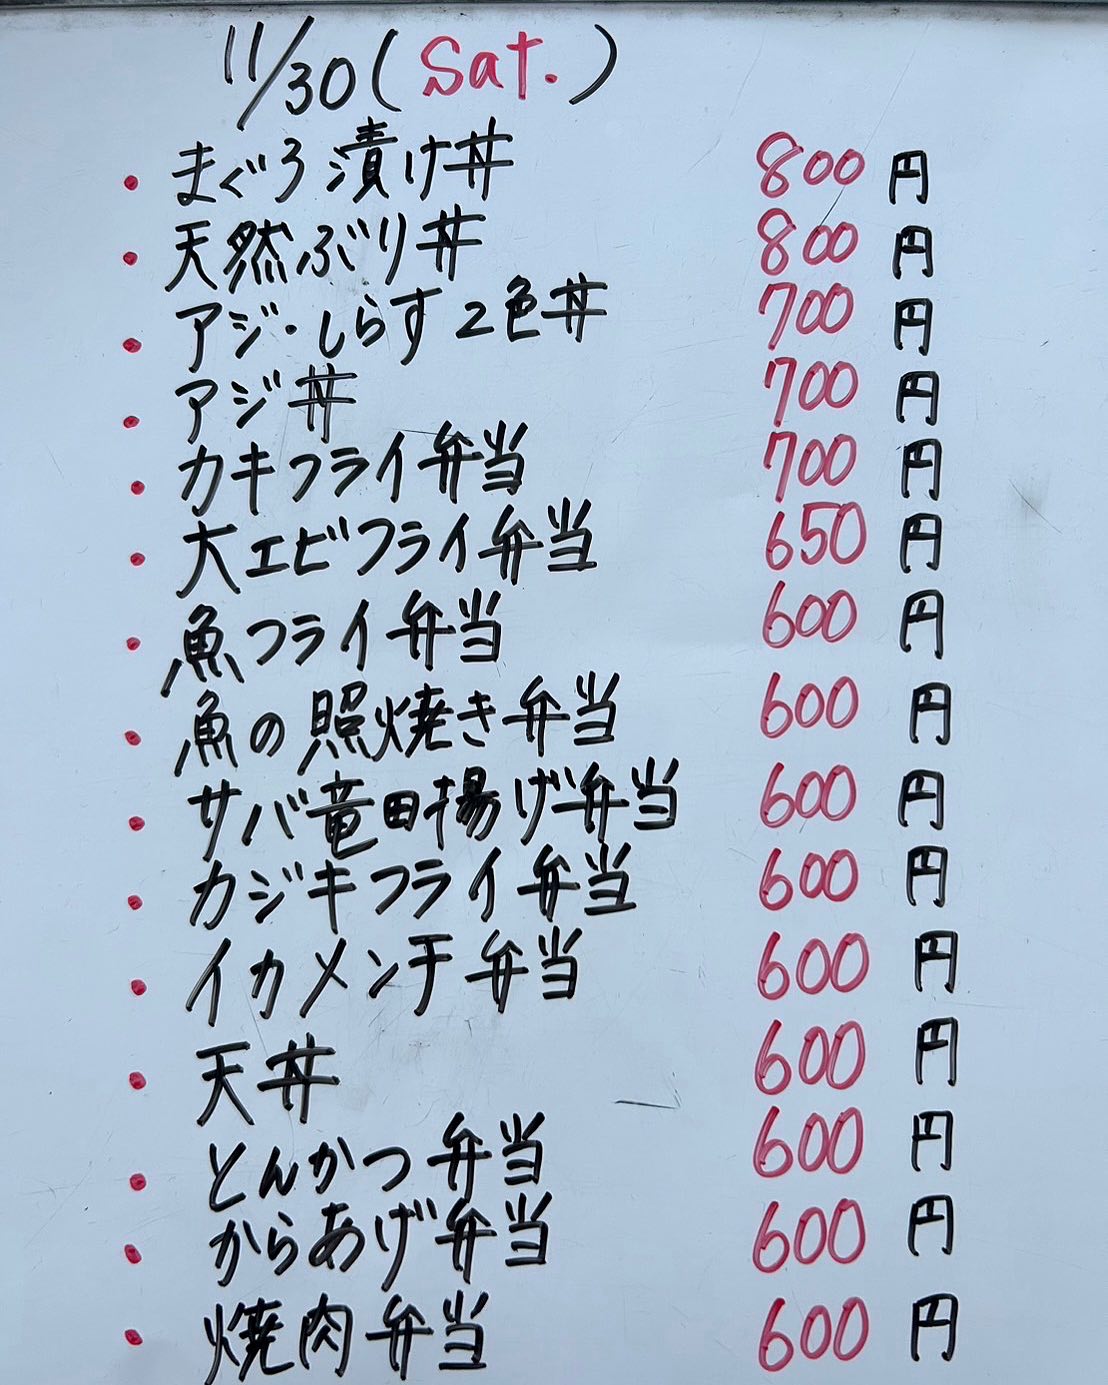 11/30(Sat.)
・まぐろ漬け丼 800円
・天然ぶり丼 800円
・アジ・しらす2色丼 700円
・アジ丼 700円
・カキフライ弁当 700円
・大エビフライ弁当 650円
・魚フライ弁当 600円
・魚の照焼き弁当 600円
・サバ竜田揚げ弁当 600円
・カジキフライ弁当 600円
・イカメンチ弁当 600円
・天丼 600円
・とんかつ弁当 600円
・からあげ弁当 600円
・焼肉弁当 600円